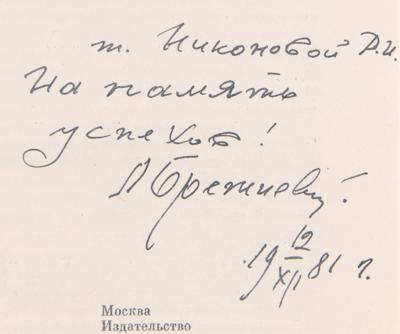 т. Никоновой Р.И.
На память
успехов!
Л Брежнев
19 12/XII 81 г.
Москва
Издательство